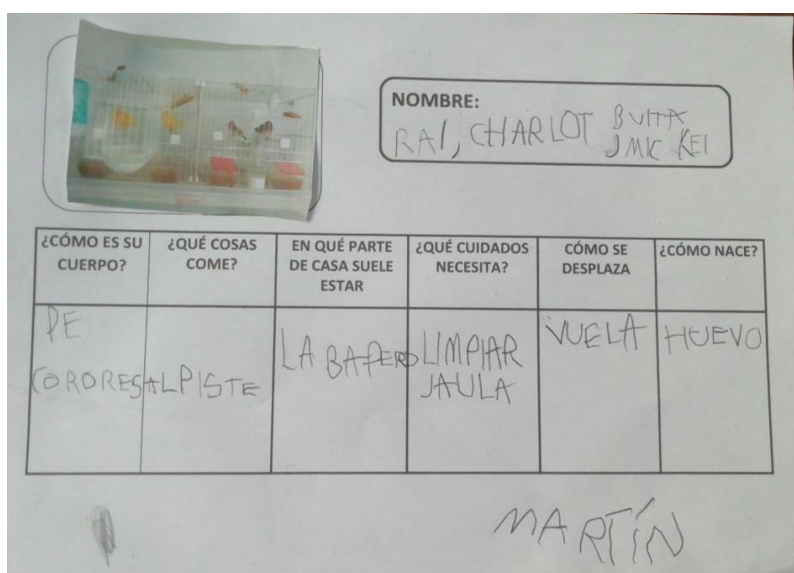 NOMBRE:
RAI, CHARLOT BUITA
JMICKEI
¿CÓMO ES SU CUERPO?
¿QUÉ COSAS COME?
EN QUÉ PARTE DE CASA SUELE ESTAR
¿QUÉ CUIDADOS NECESITA?
CÓMO SE DESPLAZA
¿CÓMO NACE?
PE
CORORES
ALPISTE
LA BAPERO
LIMPIAR
JAULA
VUELA
HUEVO
MARTÍN